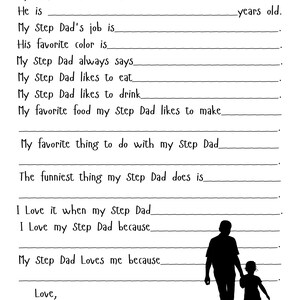 He is ______ years old.
My Step Dad's job is______.
His favorite color is______.
My Step Dad always says______.
My Step Dad likes to eat______.
My Step Dad likes to drink______.
My favorite food my Step Dad likes to make______
______.
My favorite thing to do with my Step Dad______
______.
The funniest thing my Step Dad does is______
______.
I Love it when my Step Dad______.
I Love my Step Dad because______
______.
My Step Dad Loves me because______
______.
Love,